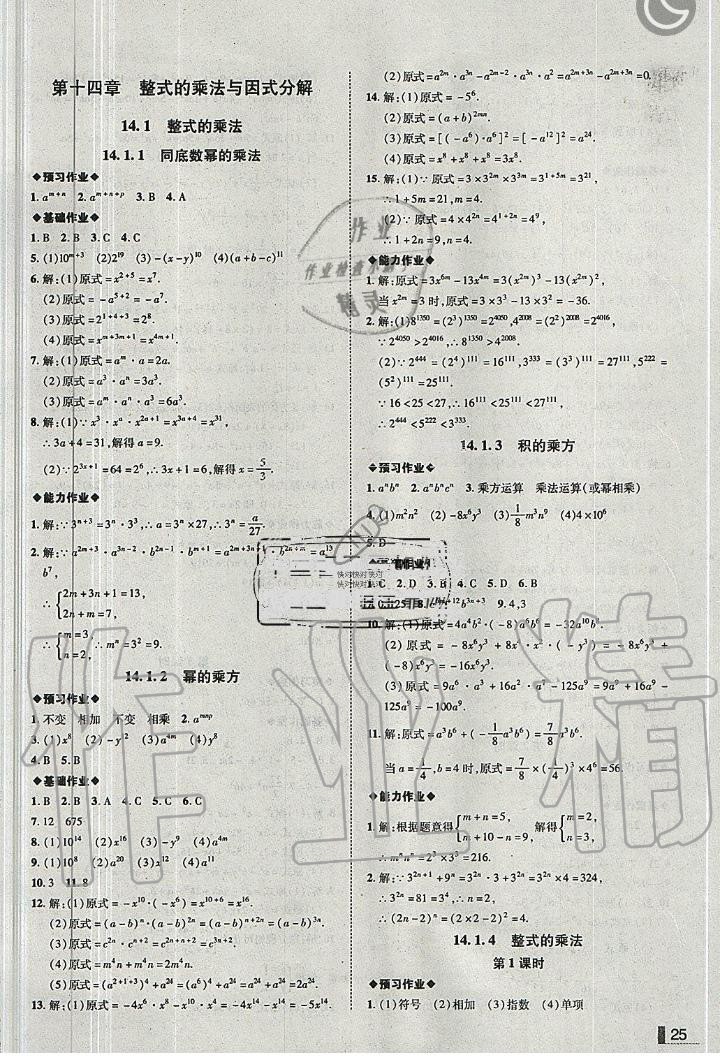 第十四章 整式的乘法与因式分解
14.1 整式的乘法
14.1.1 同底数幂的乘法
◆预习作业◆
1. a^{m+n} 2. a^{m+n+p} 3. B 4. A
◆基础作业◆
1. B 2. B 3. C 4. C
5. (1)10^{m+3} (2)2^{19} (3)-(x-y)^{10} (4)(a+b-c)^{11}
6. 解:(1)原式=x^{2+5}=x^7.
(2)原式=-a^{5+2}=-a^7.
(3)原式=2^{1+4+3}=2^8.
(4)原式=x^{m+3m+1}=x^{4m+1}.
7. 解:(1)原式=a^m·a=2a.
(2)原式=a^3·a^n=3a^3.
(3)原式=a^m·a^n·a^3=6a^3.
8. 解:(1)∵x^3·x^a·x^{2a+1}=x^{3a+4}=x^{31},
∴3a+4=31,解得a=9.
(2)∵2^{3x+1}=64=2^6,∴3x+1=6,解得x=5/3.
◆能力作业◆
1. 解:∵3^{n+3}=3^n·3^3,∴a=3^n×27,∴3^n=a/27.
2. 解:∵a^{2m+3n}·a^{3n-2}·b^{2n-1}·b^{m+1}=a^{2m+3n+1}·b^{2n+m}=a^{13}
b^7,
∴{2m+3n+1=13,
2n+m=7,
∴{m=3,
n=2, ∴m^n=3^2=9.
14.1.2 幂的乘方
◆预习作业◆
1. 不变 相加 不变 相乘 2. a^{mnp}
3. (1)x^8 (2)-y^2 (3)a^{4m} (4)y^8
4. B 5. B
◆基础作业◆
1. B 2. B 3. A 4. C 5. C 6. C
7. 12 675
8. (1)10^{14} (2)x^{16} (3)-y^9 (4)a^{4m}
9. (1)10^{10} (2)a^{20} (3)-a^{12} (4)x^{13}
10. 3 11. 8
12. 解:(1)原式=-x^{10}·(-x^6)=x^{10+6}=x^{16}.
(2)原式=(a-b)^n·(a-b)^{2n}=(a-b)^{n+2n}=(a-b)^{3n}.
(3)原式=c^{2n}·c^{n+2}=c^{2n+n+2}=c^{3n+2}.
(4)原式=m^4n+m^4n=2m^4n.
(5)原式=(a^{2+1+3})^4+(a^6)^4=(a^6)^4+a^{24}=a^{24}+a^{24}=2a^{24}.
13. 解:(1)原式=-4x^6·x^8-x^6·x^8=-4x^{14}-x^{14}=-5x^{14}.
(2)原式=a^{2m}·a^{3n}-a^{2m-2}·a^{3n}·a^2=a^{2m+3n}-a^{2m+3n}=0.
14. 解:(1)原式=-5^6.
(2)原式=(a+b)^{2mn}.
(3)原式=[(-a^6)·a^6]^2=[-a^{12}]^2=a^{24}.
(4)原式=x^8+x^8+x^8=3x^8.
15. 解:(1)∵原式=3×3^{2m}×3^{3m}=3^{1+5m}=3^{21},
∴1+5m=21,m=4.
(2)∵原式=4×4^{2n}=4^{1+2n}=4^9,
∴1+2n=9,∴n=4.
◆能力作业◆
1. 解:原式=3x^{6m}-13x^{4m}=3(x^{2m})^3-13(x^{2m})^2,
当x^{2m}=3时,原式=3×3^3-13×3^2=-36.
2. 解:(1)8^{1350}=(2^3)^{1350}=2^{4050},4^{2008}=(2^2)^{2008}=2^{4016},
∵2^{4050}>2^{4016},∴8^{1350}>4^{2008}.
(2)∵2^{444}=(2^4)^{111}=16^{111},3^{333}=(3^3)^{111}=27^{111},5^{222}=
(5^2)^{111}=25^{111}.
∵16<25<27,∴16^{111}<25^{111}<27^{111}.
∴2^{444}<5^{222}<3^{333}.
14.1.3 积的乘方
◆预习作业◆
1. a^nb^n 2. a^nb^nc^n 3. 乘方运算 乘法运算(或幂相乘)
4. (1)m^2n^2 (2)-8x^6y^3 (3)1/8 m^3n^9 (4)4×10^6
5. D
作业◆
1. C 2. D 3. B 4. C 5. D 6. B
9. 4,3
10. 解:(1)原式=4a^4b^2·(-8)a^6b^6=-32a^{10}b^8.
(2)原式=-8x^6y^3+8x^2·x^4·(-y^3)=-8x^6y^3+
(-8)x^6y^3=-16x^6y^3.
(3)原式=9a^6·a^3+16a^2·a^7-125a^9=9a^9+16a^9-
125a^9=-100a^9.
11. 解:原式=a^3b^6+(-1/8 a^3b^6)=7/8 a^3b^6,
当a=1/4,b=4时,原式=7/8×(1/4)^3×4^6=56.
◆能力作业◆
1. 解:根据题意得{m+n=5,
m+10-n=9, 解得{m=2,
n=3,
∴m^nn^n=2^3×3^3=216.
2. 解:∵3^{2n+1}+9^n=3^{2n}·3+3^{2n}=4×3^{2n}=324,
∴3^{2n}=81=3^4,∴n=2.
∴(2n-2)^n=(2×2-2)^2=4.
14.1.4 整式的乘法
第1课时
◆预习作业◆
1. (1)符号 (2)相加 (3)指数 (4)单项
25
作业
作业检查小助手
精灵
快对快对快对
快对快对快对
作业精